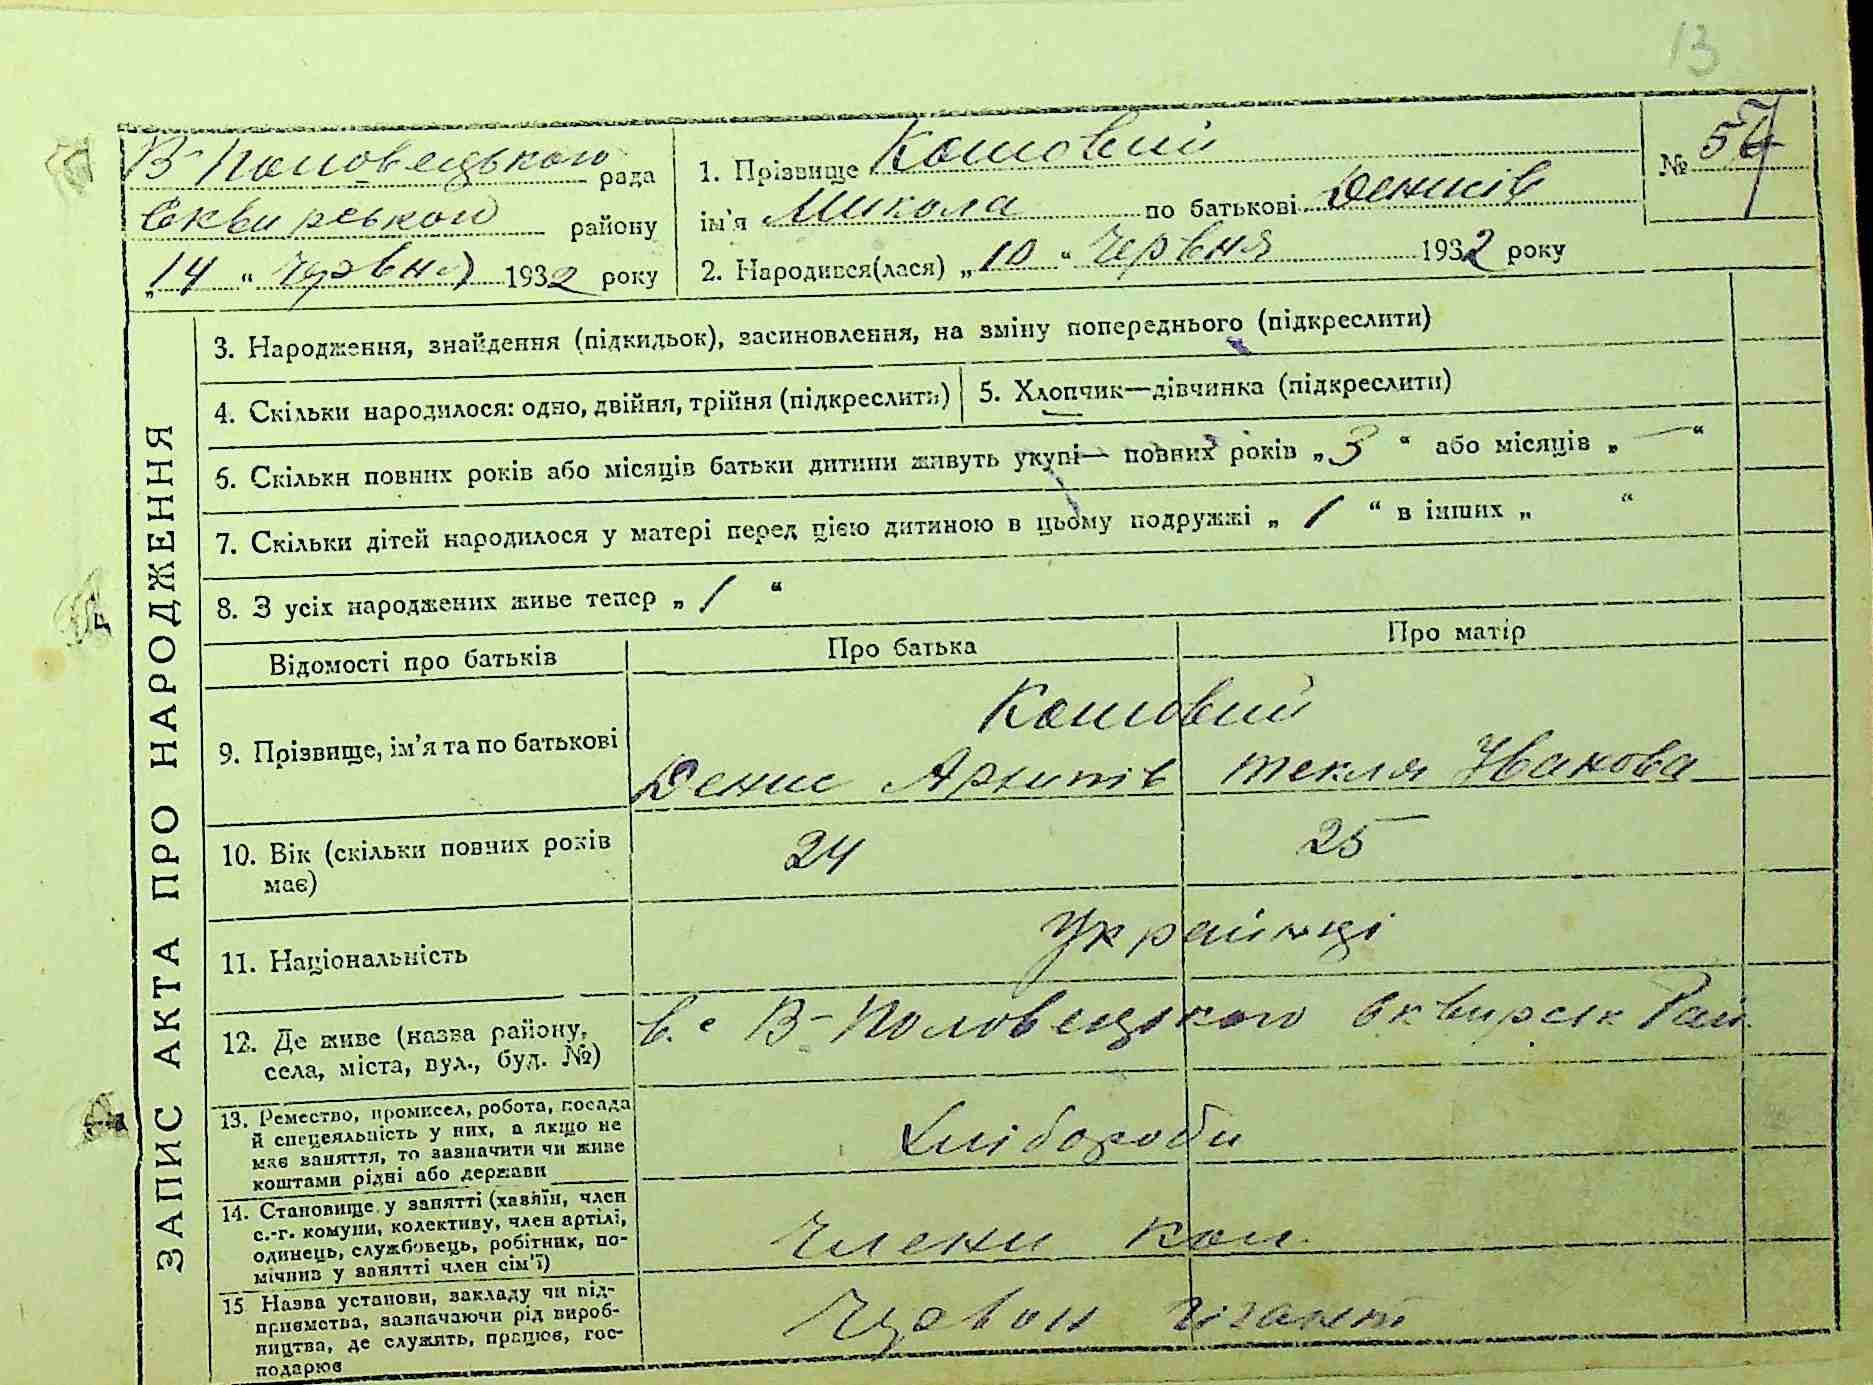 13
В-Половецького рада
Сквирського району
„14 “ Червня 1932 року
1. Прізвище Кошовий
ім'я Микола по батькові Денисів
2. Народився(лася) „10 “ Червня 1932 року
№ 57
ЗАПИС АКТА ПРО НАРОДЖЕННЯ
3. Народження, знайдення (підкидьок), засиновлення, на зміну попереднього (підкреслити)
4. Скільки народилося: одно, двійня, трійня (підкреслить)
5. Хлопчик—дівчинка (підкреслити)
6. Скільки повних років або місяців батьки дитини живуть укупі— повних років „ 3 “ або місяців „ — “
7. Скільки дітей народилося у матері перед цією дитиною в цьому подружжі „ 1 “ в інших „ “
8. З усіх народжених живе тепер „ 1 “
Відомості про батьків
Про батька
Про матір
9. Прізвище, ім'я та по батькові
Кошовий
Денис Архипів Текля Іванова
10. Вік (скільки повних років
має)
24
25
11. Національність
Українці
12. Де живе (назва району,
села, міста, вул., буд. №)
в. с В-Половецького Сквирськ Рай
13. Ремество, промисел, робота, посада
й спецеяльність у них, а якщо не
має заняття, то зазначити чи живе
коштами рідні або держави
Хлібороби
14. Становище у занятті (хазяїн, член
с.-г. комуни, колективу, член артілі,
одинець, службовець, робітник, по-
мічник у занятті член сім'ї)
Члени кол
15 Назва установи, закладу чи під-
приємства, зазначаючи рід вироб-
ництва, де служить, працює, гос-
подарює
Червон гігант